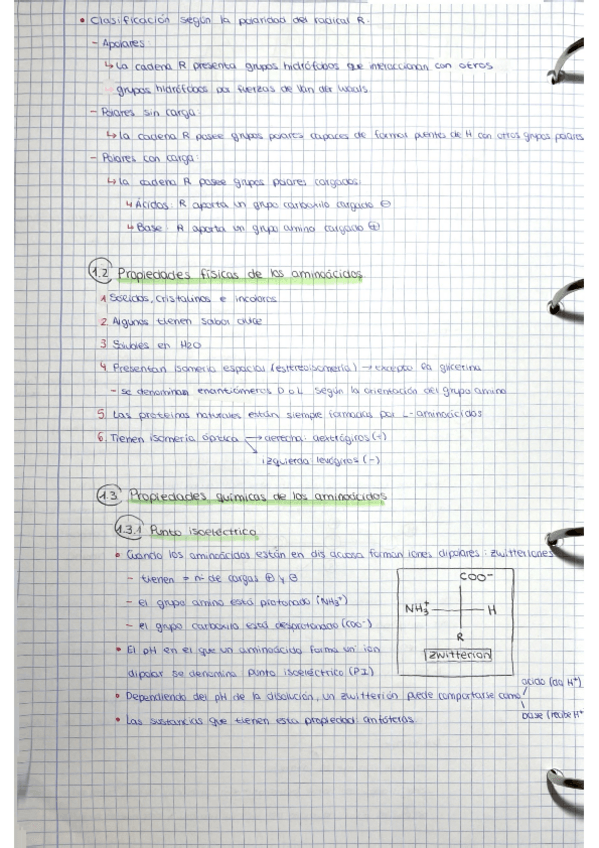 • Clasificación según la polaridad del radical R.
- Apolares:
↳ La cadena R presenta grupos hidrófobos que interaccionan con otros
grupos hidrófobos por fuerzas de Van der Waals.
- Polares sin carga:
↳ La cadena R posee grupos polares capaces de formar puentes de H con otros grupos polares
- Polares con carga:
↳ La cadena R posee grupos polares cargados.
↳ Ácidos: R aporta un grupo carboxilo cargado ⊖
↳ Base: R aporta un grupo amino cargado ⊕
1.2 Propiedades físicas de los aminoácidos
1 Sólidos, cristalinos e incoloros
2 Algunos tienen sabor dulce
3 Solubles en H2O
4 Presentan isomería espacial (estereoisomería) → excepto la glicerina
- se denominan enantiómeros D o L según la orientación del grupo amino
5. Las proteínas naturales están siempre formadas por L-aminoácidos
6. Tienen isomería óptica → derecha: dextrógiros (+)
izquierda levógiros (-)
1.3 Propiedades químicas de los aminoácidos
1.3.1 Punto isoeléctrico
• Cuando los aminoácidos están en dis acuosa forman iones dipolares: zwitteriones
- tienen = nº de cargas ⊕ y ⊖
- el grupo amino está protonado (NH3+)
- el grupo carboxilo está desprotonado (COO-)
COO-
NH3+ H
R
Zwitterion
• El pH en el que un aminoácido forma un ion
dipolar se denomina punto isoeléctrico (PI)
• Dependiendo del pH de la disolución, un zwitterión puede comportarse como
ácido (da H+)
base (recibe H+
• Las sustancias que tienen esta propiedad anfóteros.